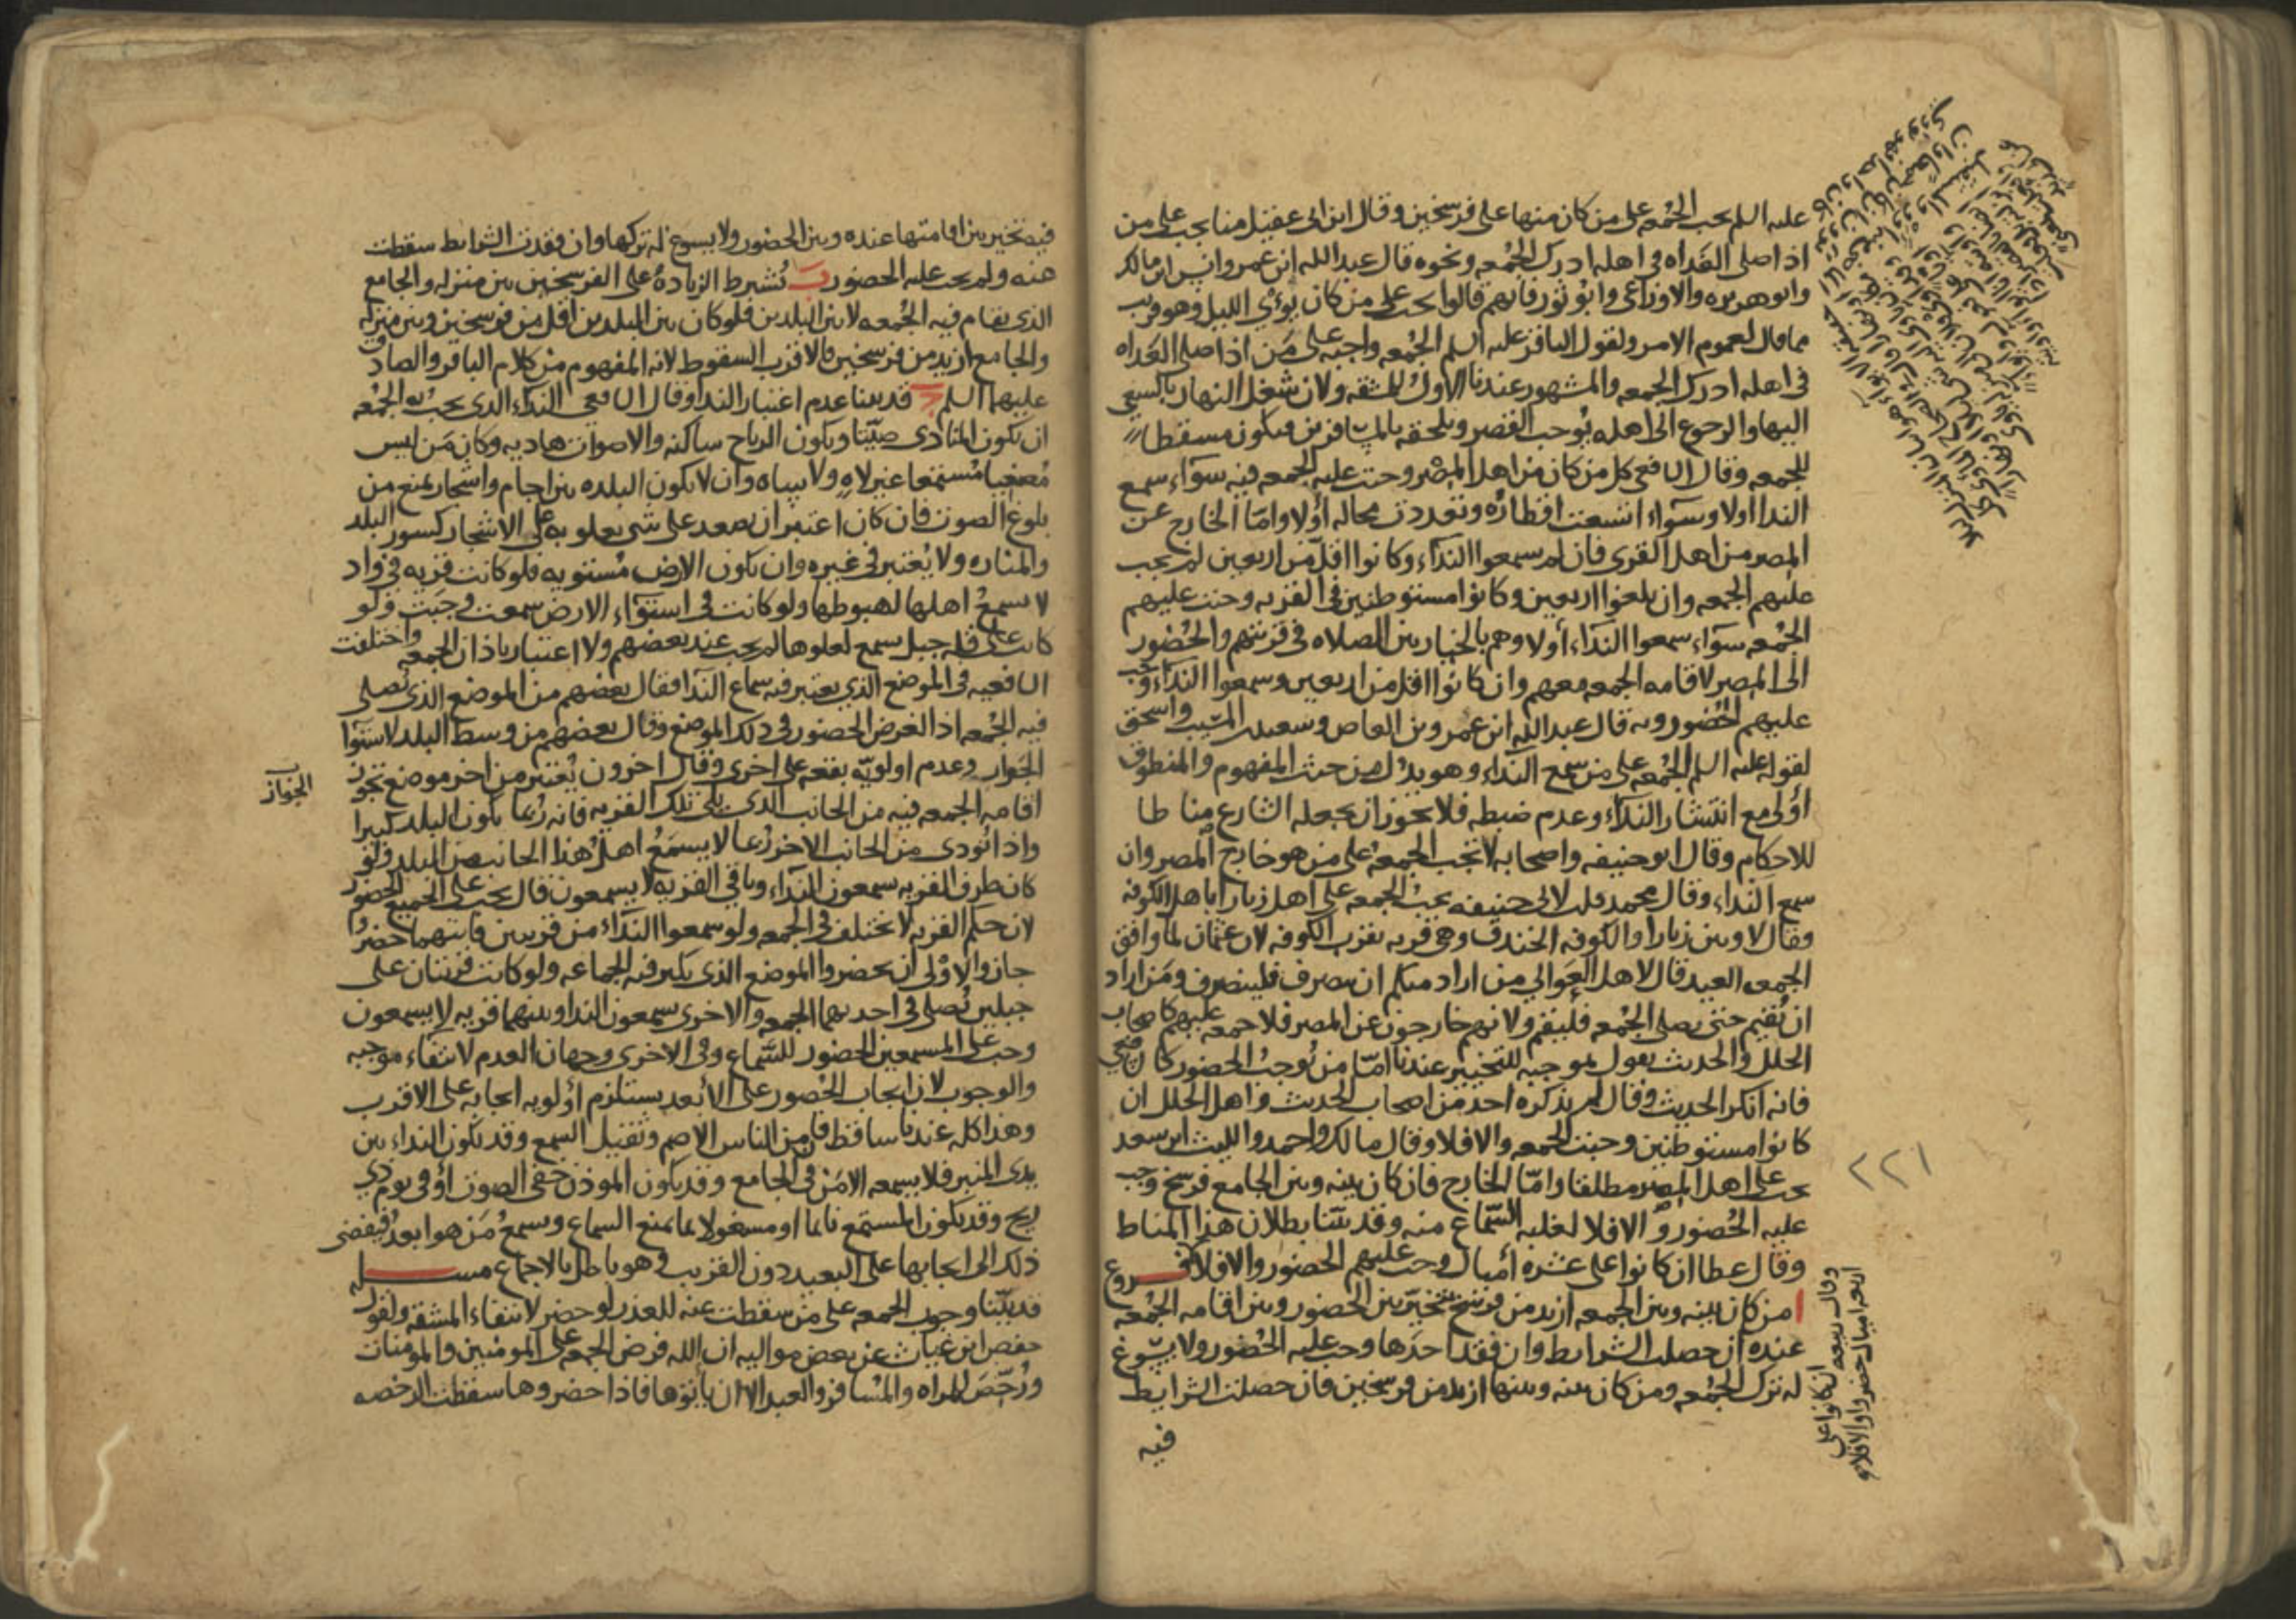 عليه السلم يجب الجمعه على من كان منها على فرسخين وقال ابن ابى عقيل منا يجب على من
اذا صلى الغداه فى اهله ادرك الجمعه ونحوه قال عبد الله ابن عمر وانس ابن مالك
وابو هريره والاوزاعى وابو ثور فانهم قالوا يجب على من كان يؤوي الليل وهو قريب
مما قال لعموم الامر ولقول الباقر عليه السلم الجمعه واجبه على من اذا صلى الغداه
فى اهله ادرك الجمعه والمشهور عندنا الاول للمشقه ولان شغل النهار بالسعي
اليها والرجوع الى اهله يوجب القصر ويلحقه بالمسافرين فيكون مسقطا
للجمعه وقال الشافعى كل من كان من اهل المصر وجبت عليه الجمعه فيه سوآء سمع
الندا اولا وسوآء اتسعت اقطاره وتعددت محاله أولا وامّا الخارج عن
المصر من اهل القرى فان لم سمعوا النداء وكانوا اقل من اربعين لم يجب
عليهم الجمعه وان بلغوا اربعين وكانوا مستوطنين فى القريه وجبت عليهم
الجمعه سوآء سمعوا الندآء أولا وهم بالخيار بين الصلاه فى قريتهم والحضور
الى المصر لاقامه الجمعه معهم وان كانوا اقل من اربعين وسمعوا الندآء وجب
عليهم الحضور وبه قال عبد الله ابن عمرو بن العاص وسعيد بن المسيّب واسحق
لقوله عليه السلم الجمعه على من سمع الندآء وهو يدل من حيث المفهوم والمنطوق
أولى مع انتشار النداء وعدم ضبطه فلا يجوز ان يجعله الشارع مناطا
للاحكام وقال ابو حنيفه واصحابه لا تجب الجمعه على من هو خارج المصر وان
سمع الندآء وقال محمد قلت لابى حنيفه يجب الجمعه على اهل زبارا باهل الكوفه
وقال لا وبين زبارا والكوفه الخندق وهى قريه بقرب الكوفه لان عثمان لما وافق
الجمعه العيد قال لاهل العوالي من اراد منكم ان ينصرف فلينصرف ومن اراد
ان يُقيم حتى يصلى الجمعه فليقم ولانهم خارجون عن المصر فلا جمعه عليهم كاصحاب
الحلل والحديث نقول بموجبه للتخيير عندنا امّا من يوجب الحضور كالشافعي
فانه انكر الحديث وقال لم يذكره احد من اصحاب الحديث واهل الحلل ان
كانوا مستوطنين وجبت الجمعه والا فلا وقال مالك واحمد والليث ابن سعد
يجب على اهل المصر مطلقا وامّا الخارج فان كان بينه وبين الجامع فرسخ وجب
عليه الحُضور والا فلا لغلبه السّماع منه وقد بيّنا بطلان هذا المناط
وقال عطا ان كانوا على عشره أميال وجب عليهم الحضور والا فلا فروع
ا من كان بينه وبين الجمعه ازيد من فرسخ تخيّر بين الحضور وبين اقامه الجمعه
عنده ان حصلت الشرايط وان فقد احدها وجب عليه الحُضور ولا يسوغ
له ترك الجمعه ومن كان بينه وبينها ازيد من فرسخين فان حصلت الشرايط
فيه
٢٢١
وقال ربيعه ان كانوا على
اربعه اميال حضروا والا فلا
فيه تخير بين اقامتها عنده وبين الحضور ولا يسوغ له تركها وان فقدت الشرايط سقطت
عنه ولم يجب عليه الحضور ب يُشترط الزيادهُ على الفرسخين بين منزله والجامع
الذى يقام فيه الجُمعه لا بين البلدين فلو كان بين البلدين اقل من فرسخين وبين منزله
والجامع ازيد من فرسخين فالاقرب السقوط لانه المفهوم من كلام الباقر والصادق
عليهما السلم ج قد بينا عدم اعتبار الندا وقال الشافعى الندآء الذى يجب به الجمعه
ان يكون المنادى صيّتا ويكون الرياح ساكنه والاصوات هاديه وكان من ليس
مستمعا غير لاهٍ ولا سياه وان لا يكون البلده بين اجام واشجار يمنع من
بلوغ الصوت فان كان اعتبر ان يصعد على شى يعلو به على الاشجار كسور البلد
والمناره ولا يُعتبر فى غيره وان يكون الارض مُستويه فلو كانت قريه فى واد
لا يسمعُ اهلها لهبوطها ولو كانت فى استوآء الارض سمعت وجبت ولو
كانت على قله جبل يسمع لعلوها لم يجب عند بعضهم ولا اعتبار باذان الجمعه واختلفت
الشافعيه فى الموضع الذي يعتبر فيه سماع الندآ فقال بعضهم من الموضع الذى يُصلى
فيه الجُمعه اذ الغرض الحضور فى ذلك الموضع وقال بعضهم من وسط البلد لاستوآ
الجوانب وعدم اولويّه بقعه على اخرى وقال اخرون يُعتبر من اخر موضع يجوز
اقامه الجمعه فيه من الجانب الذى يلى تلك القريه فانه رُبما يكون البلد كبيرا
واذا نُودى من الجانب الاخر رُبما لا يسمَعُ اهل هذا الجانب من البلد ولو
كان طرف القريه يسمعون الندآء وباقى القريه لا يسمعون قال يجب على الجميع الحضور
لان حكم القريه لا يختلف فى الجمعه ولو سمعوا الندآء من قريتين فايتهما حضرُوا
جاز والاوْلى ان يحضروا الموضع الذى يكثر فيه الجماعه ولو كانت قريتان على
جبلين يُصلى فى احديهما الجمعه والاخرى يسمعون الندا وبينهما قريه لا يسمعون
وجب على المسمعين الحضور للسّماع وفى الاخرى وجهان العدم لانتفاء موجبه
والوجوب لان ايجاب الحُضور على الأبعد يستلزم أولويه ايجابه على الاقرب
وهذا كله عندنا ساقط فان من الناس الاصم وثقيل السمع وقد يكون النداء بين
يدى المنبر فلا يسمعه الا مَنْ فى الجامع وقد يكون الموذن خفى الصوت أو فى يوم ذي
ريح وقد يكون المستمع نايما او مشغولا بما يمنع السماع ويسمعُ مَن هو ابعد فيفضى
ذلك الى ايجابها على البعيد دون القريب وهو باطل بالاجماع مسله
قد بيّنا وجوب الجمعه على من سقطت عنه للعذر لو حضر لانتفاء المشقه ولقول
حفص ابن غياث عن بعض مواليه ان الله فرض الجمعه على المومنين والمومنات
ورُخّصَ للمراه والمُسافر والعبد الا ان ياتوها فاذا حضروها سقطت الرخصه